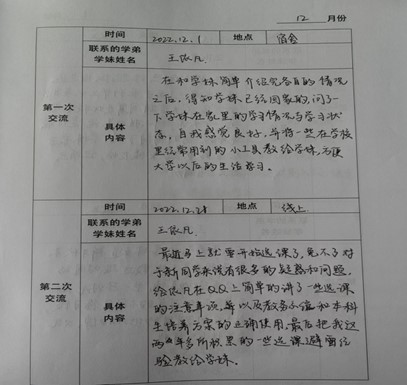 12 月份
时间 2022.12.1 地点 宿舍
联系的学弟
学妹姓名
王依凡
第一次
交流
具体
内容
在和学妹简单介绍完各自的情况
之后，得知学妹已经回家的，问了一
下学妹在家里的学习情况与学习状
态，自我感觉良好，并将一些在学校
里经常用到的小工具教给学妹，方便
大学以后的生活学习。
时间 2022.12.28 地点 线上
联系的学弟
学妹姓名
王依凡
第二次
交流
具体
内容
最近马上就要开始选课了，免不了对
于新同学来说有很多的疑惑和问题。
给依凡在QQ上简单的讲了一些选课
的注意事项，等以及教务小值和本科
生培养方案的正确使用，最后把我这
两年多所积累的一些选课避雷经
验教给学妹。